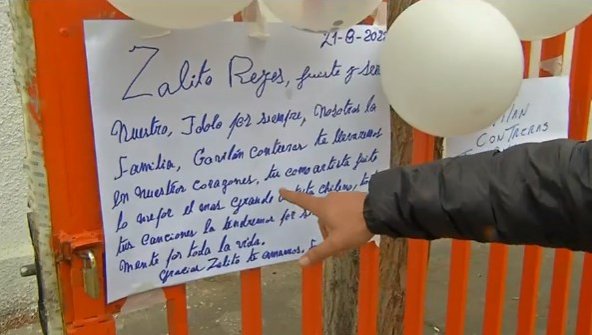 21-8-202
Zalito Reyes, fuiste y será
Nuestro, Idolo por siempre, Nosotros la
Familia, Gavilán Contreras te llevaremos
en nuestros corazones, tu como artista fuite
lo mejor el mas grande chileno,
tus canciones la tendremos for
Mente for toda la vida.
Gracias Zalito te amamos.
CONTRERAS